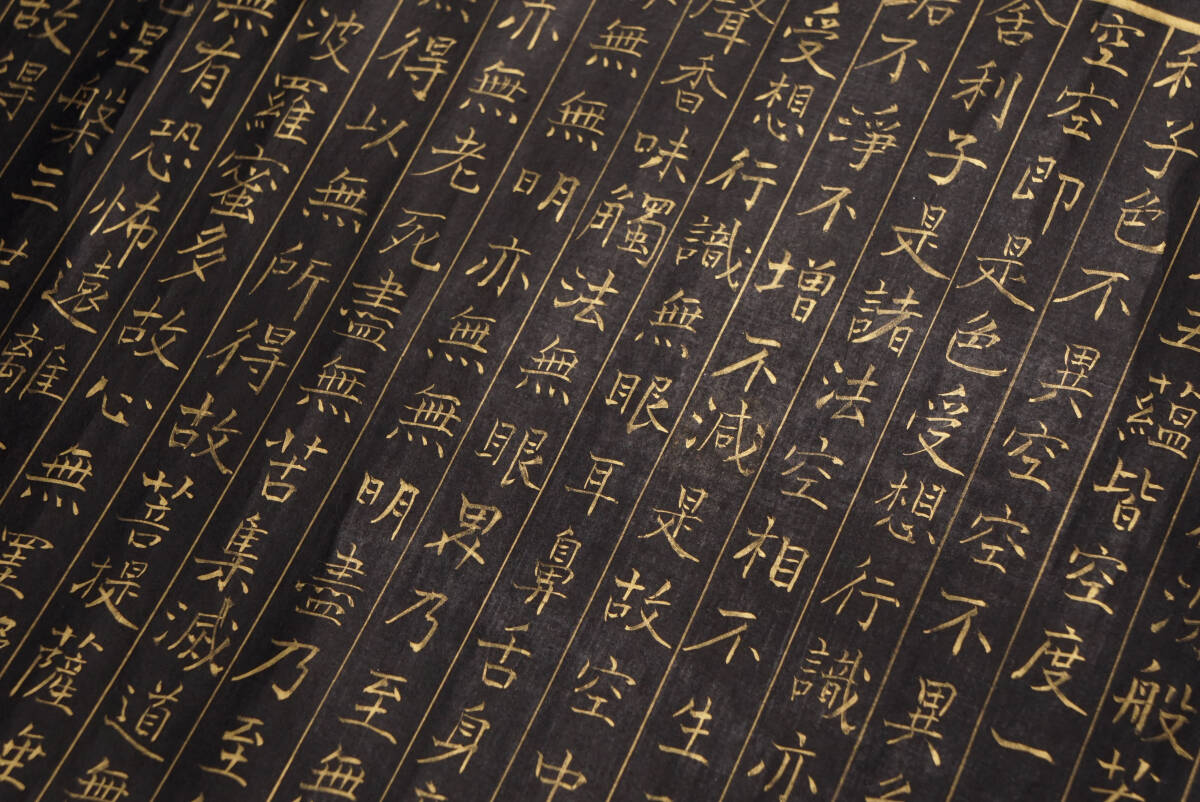 般若
五蘊皆空度一
利子色不異空空不異
空空即是色受想行識亦
舍利子是諸法空相不生
垢不淨不增不減是故空中
受想行識無眼耳鼻舌身
聲香味觸法無眼界乃至無
無無明亦無無明盡乃至
亦無老死盡無苦集滅道無
得以無所得故菩提薩
波羅蜜多故心無罣
無有恐怖遠離
涅槃三世
故得